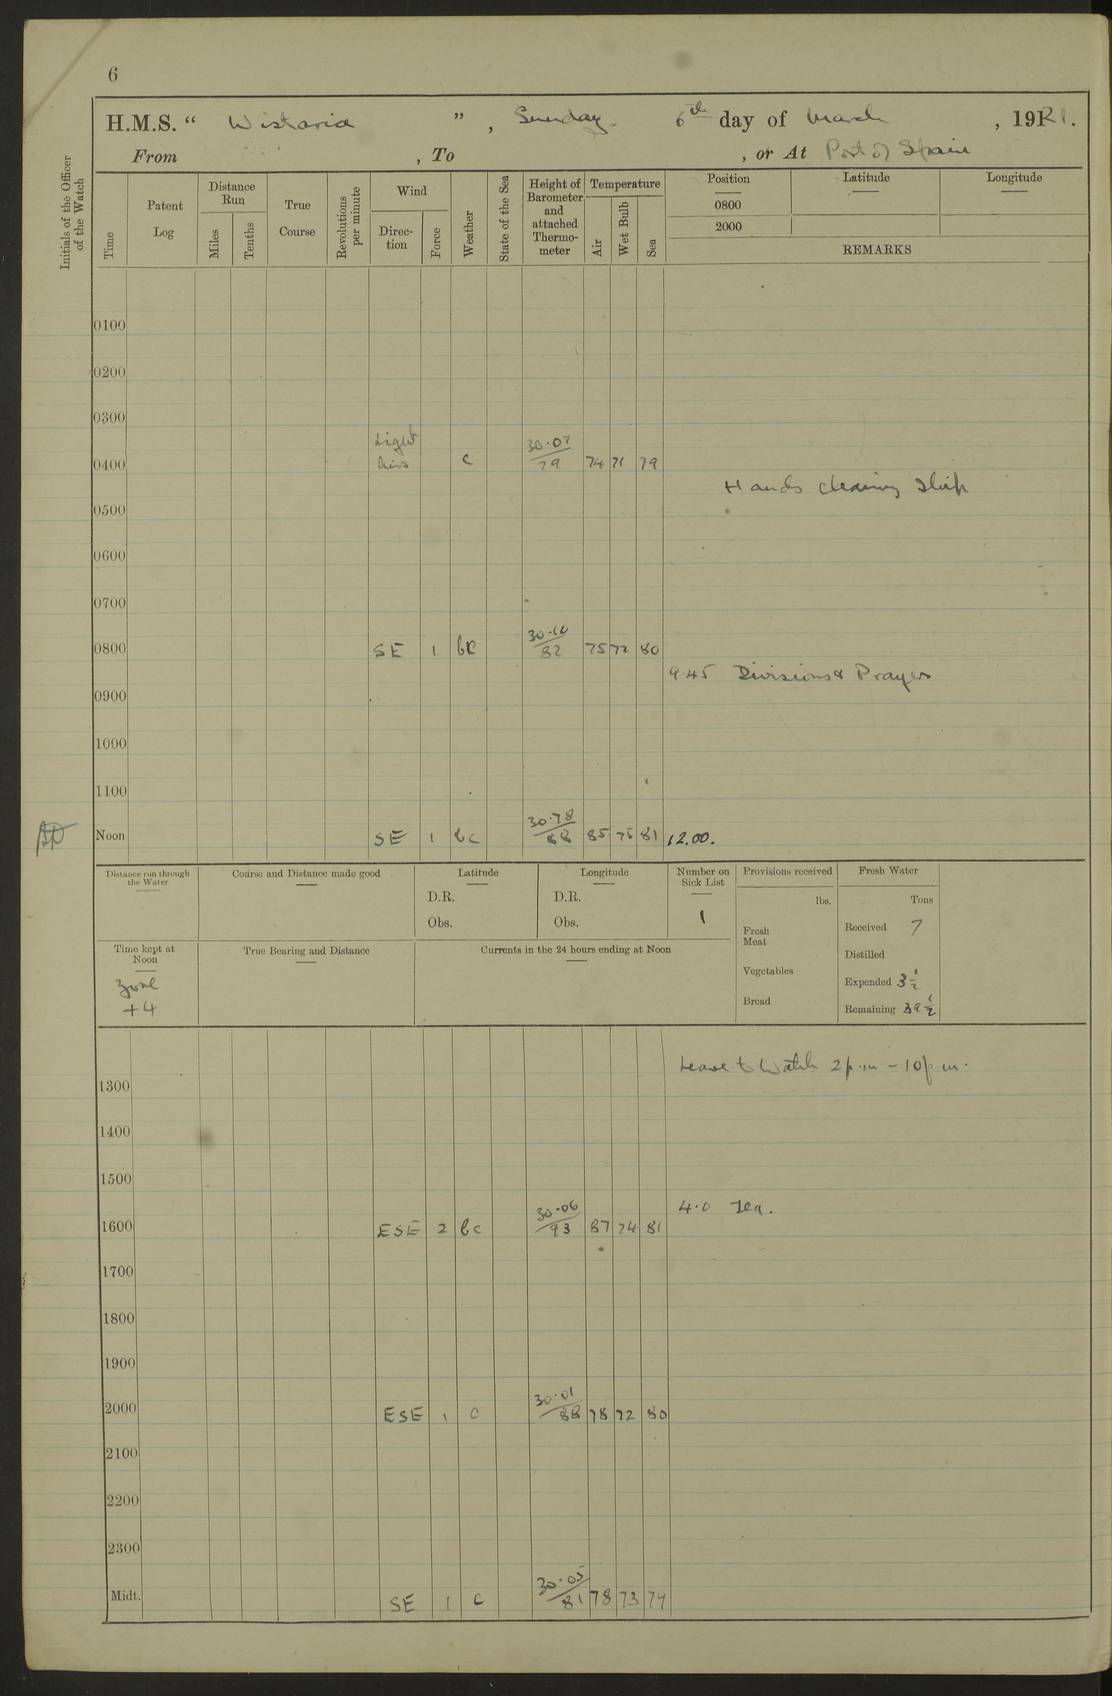 6
H.M.S. “ Wistaria ” , Sunday. 6th day of March , 1921.
From , To , or At Port of Spain
Initials of the Officer of the Watch
Time
Patent Log
Distance Run
Miles
Tenths
True Course
Revolutions per minute
Wind
Direction
Force
Weather
State of the Sea
Height of Barometer and attached Thermometer
Temperature
Air
Wet Bulb
Sea
Position Latitude Longitude
0800
2000
REMARKS
0100
0200
0300
Light 30.07
0400 Airs c 79 74 71 79
Hands cleaning Ship
0500
0600
0700
30.10
0800 SE 1 bc 82 75 72 80
9.45 Divisions & Prayers
0900
1000
1100
30.78
Noon SE 1 bc 88 85 75 81 12.00.
Distance run through the Water
Course and Distance made good
Latitude
D.R.
Obs.
Longitude
D.R.
Obs.
Number on Sick List
1
Provisions received
lbs.
Fresh Meat
Vegetables
Bread
Fresh Water
Tons
Received 7
Distilled
Expended 3 1/2
Remaining 39 1/2
Time kept at Noon
Zone
+4
True Bearing and Distance
Currents in the 24 hours ending at Noon
Leave to Watch 2 p.m – 10 p.m.
1300
1400
1500
4.0 Tea.
30.06
1600 ESE 2 bc 93 87 74 81
1700
1800
1900
30.01
2000 ESE 1 c 88 78 72 80
2100
2200
2300
30.05
Midt. SE 1 c 81 78 73 79